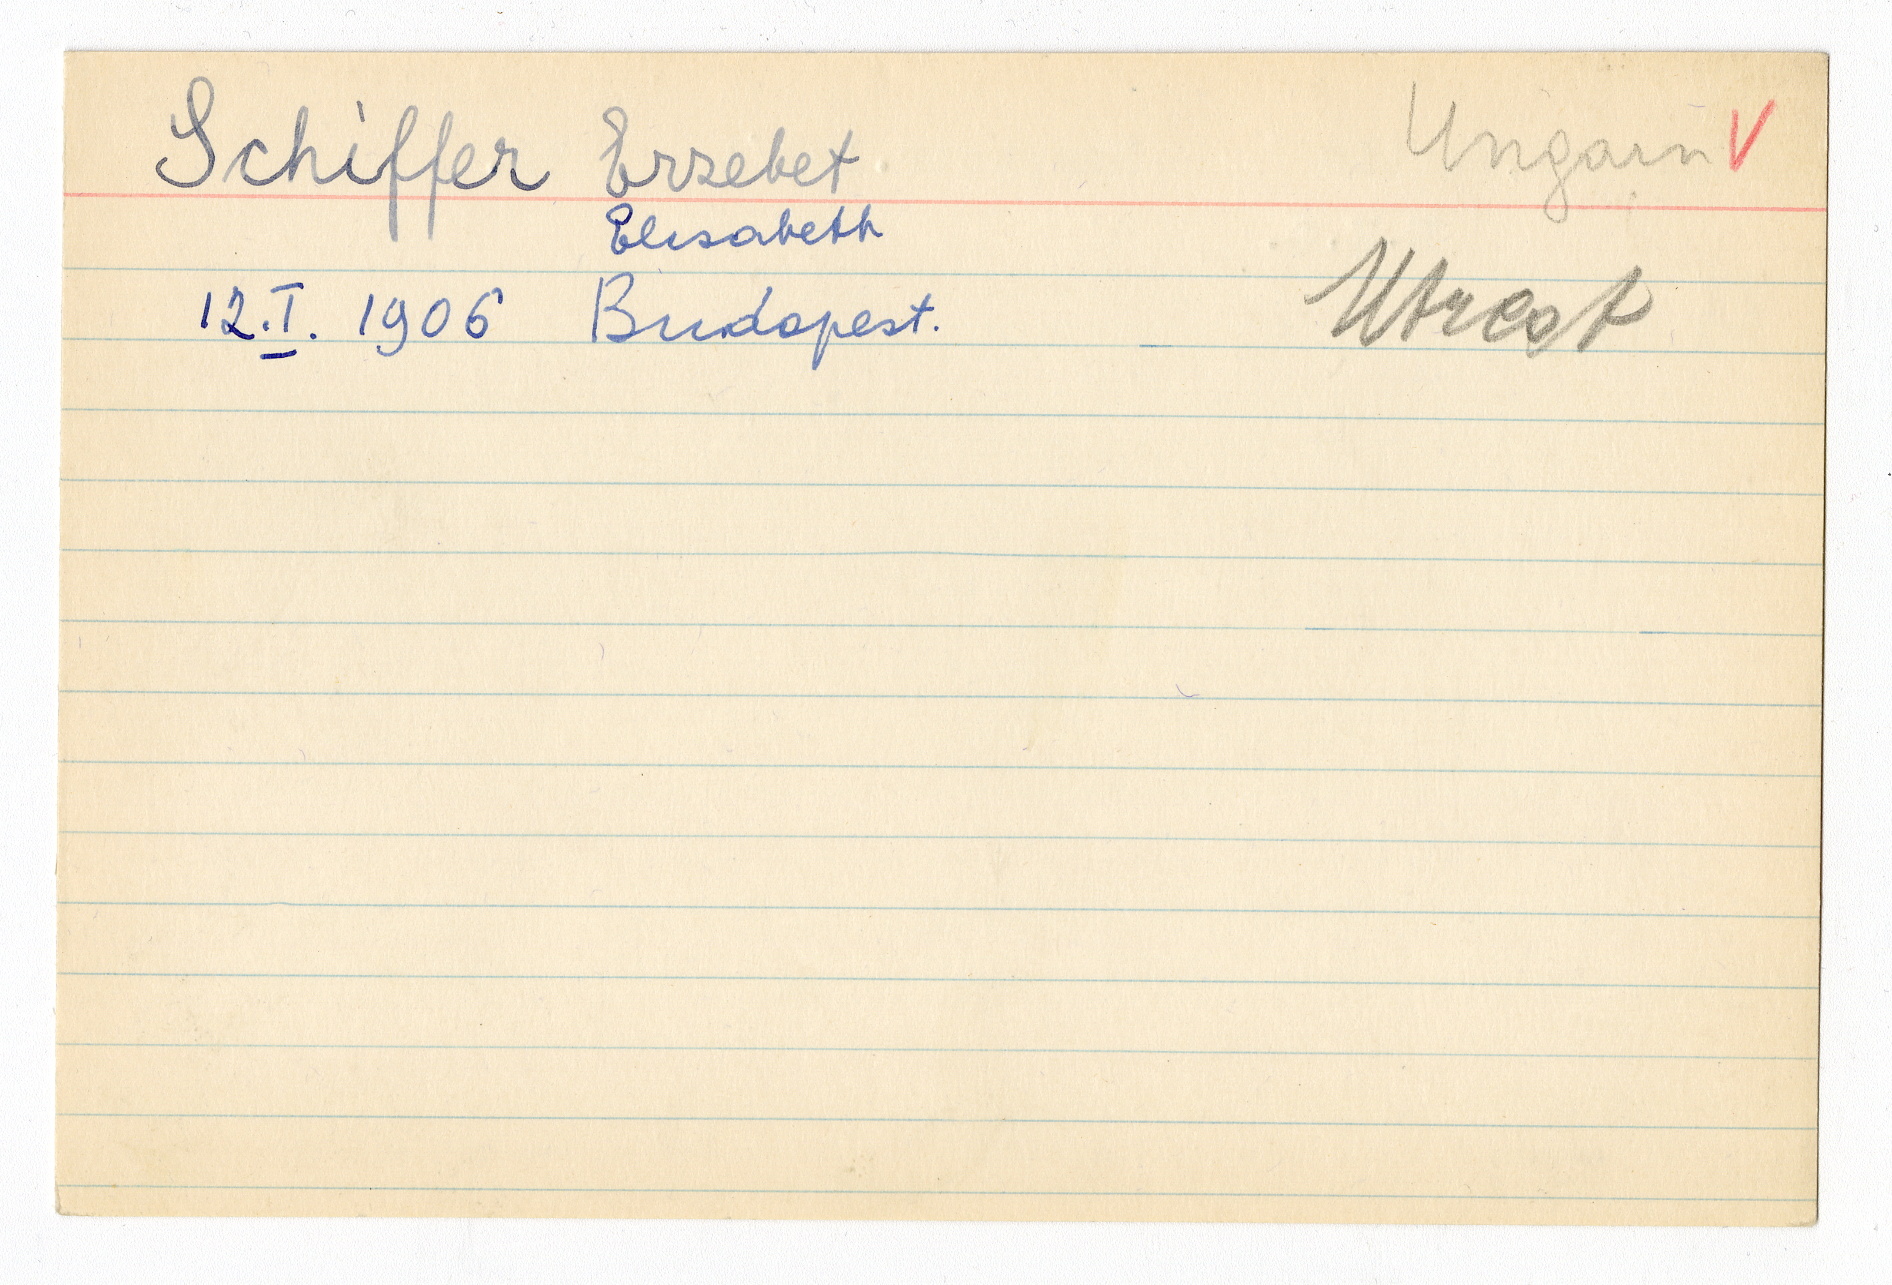 Schiffer Erzsebet Ungarn V
Elisabeth
12.I. 1906 Budapest.